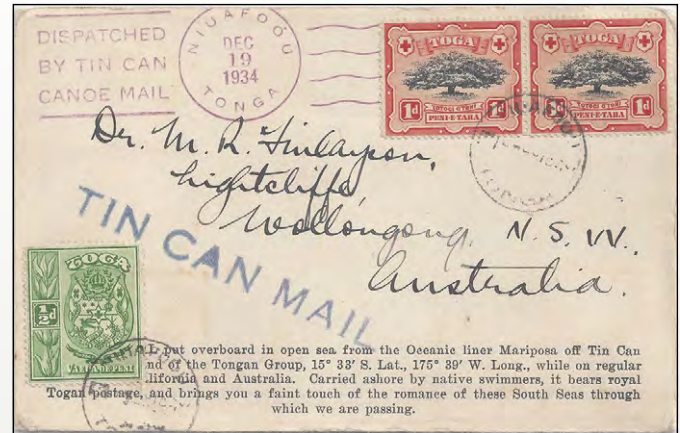 DISPATCHED
BY TIN CAN
CANOE MAIL
NIUAFOOU
DEC
19
1934
TONGA
TOGA
1d 1d
PENI·E·TAHA
TOGA
1d
PENI·E·TAHA
Dr. M. R. Finlayson,
Lightcliffe
Wollongong. N. S. W.
Australia.
TIN CAN MAIL
TOGA
½d
put overboard in open sea from the Oceanic liner Mariposa off Tin Can
nd of the Tongan Group, 15° 33' S. Lat., 175° 39' W. Long., while on regular
lifornia and Australia. Carried ashore by native swimmers, it bears royal
Togan postage, and brings you a faint touch of the romance of these South Seas through
which we are passing.